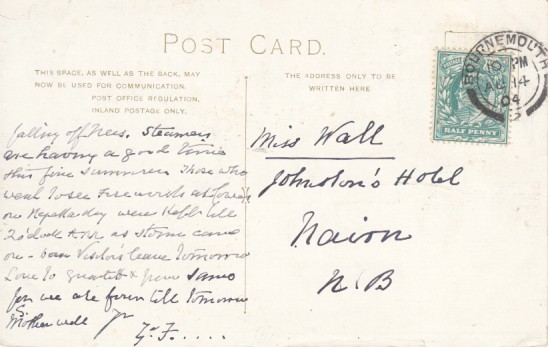 POST CARD.
THIS SPACE, AS WELL AS THE BACK, MAY
NOW BE USED FOR COMMUNICATION.
POST OFFICE REGULATION,
INLAND POSTAGE ONLY.
THE ADDRESS ONLY TO BE
WRITTEN HERE
BOURNEMOUTH
10 PM
14
04
HALF PENNY
falling off trees. Steamers
are having a good time
this fine summer. Those who
went to see Fireworks at
on Regatta day were kept till
2 o'clock as storm came
on - our Visitors leave tomorrow
Love to & from same
for we are four till tomorrow
Mother well
Miss Wall
Johnston's Hotel
Nairn
N B